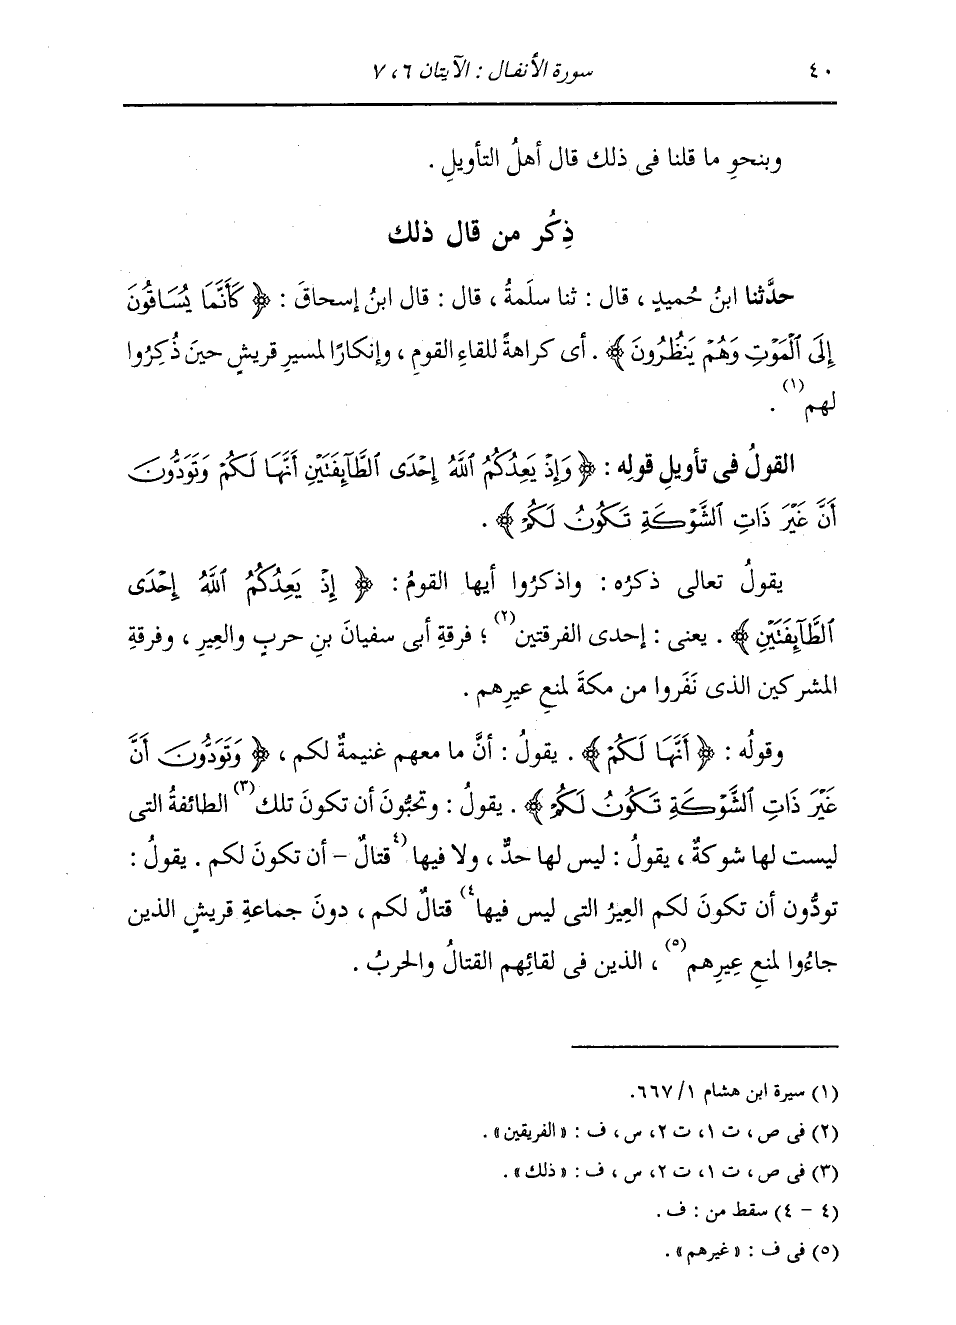 ٤٠ سورة الأنفال : الآيتان ٦ ، ٧
وبنحوِ ما قلنا فى ذلك قال أهلُ التأويلِ .
ذِكْر من قال ذلك
حدَّثنا ابنُ حُميدٍ ، قال : ثنا سلَمةُ ، قال : قال ابنُ إسحاقَ : ﴿ كَأَنَّمَا يُسَاقُونَ
إِلَى ٱلْمَوْتِ وَهُمْ يَنظُرُونَ ﴾ . أى كراهةً للقاءِ القومِ ، وإنكارًا لمسيرِ قريشٍ حينَ ذُكِرُوا
لهم (١) .
القولُ فى تأويلِ قولِه : ﴿ وَإِذْ يَعِدُكُمُ ٱللَّهُ إِحْدَى ٱلطَّآئِفَتَيْنِ أَنَّهَا لَكُمْ وَتَوَدُّونَ
أَنَّ غَيْرَ ذَاتِ ٱلشَّوْكَةِ تَكُونُ لَكُمْ ﴾ .
يقولُ تعالى ذكرُه : واذكروا أيها القومُ : ﴿ إِذْ يَعِدُكُمُ ٱللَّهُ إِحْدَى
ٱلطَّآئِفَتَيْنِ ﴾ . يعنى : إحدى الفرقتين (٢) ؛ فرقةِ أبى سفيانَ بنِ حربٍ والعِيرِ ، وفرقةِ
المشركين الذى نَفَروا من مكةَ لمنعِ عيرِهم .
وقولُه : ﴿ أَنَّهَا لَكُمْ ﴾ . يقولُ : أنَّ ما معهم غنيمةٌ لكم ، ﴿ وَتَوَدُّونَ أَنَّ
غَيْرَ ذَاتِ ٱلشَّوْكَةِ تَكُونُ لَكُمْ ﴾ . يقولُ : وتحبُّونَ أن تكونَ تلك (٣) الطائفةُ التى
ليست لها شوكةٌ ، يقولُ : ليس لها حدٌّ ، ولا فيها (٤ قتالٌ – أن تكونَ لكم . يقولُ :
تودُّون أن تكونَ لكم العِيرُ التى ليس فيها ٤) قتالٌ لكم ، دونَ جماعةِ قريشٍ الذين
جاءُوا لمنعِ عِيرِهم (٥) ، الذين فى لقائِهم القتالُ والحربُ .
(١) سيرة ابن هشام ١/ ٦٦٧.
(٢) فى ص ، ت ١، ت ٢، س ، ف : « الفريقين » .
(٣) فى ص ، ت ١، ت ٢، س ، ف : « ذلك » .
(٤ – ٤) سقط من : ف .
(٥) فى ف : « غيرهم » .